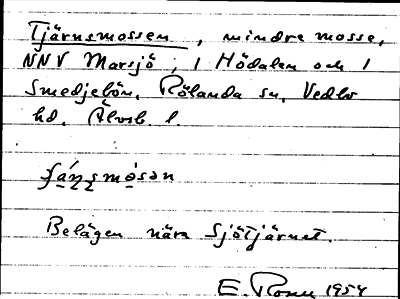 Tjärnsmossen, mindre mosse,
NNV Marsjö, i Hödalen och i
Smedjebön. Rölanda sn, Vedbo
hd. Älvsb l.
Belägen nära Sjötjärnet.
E. 1954